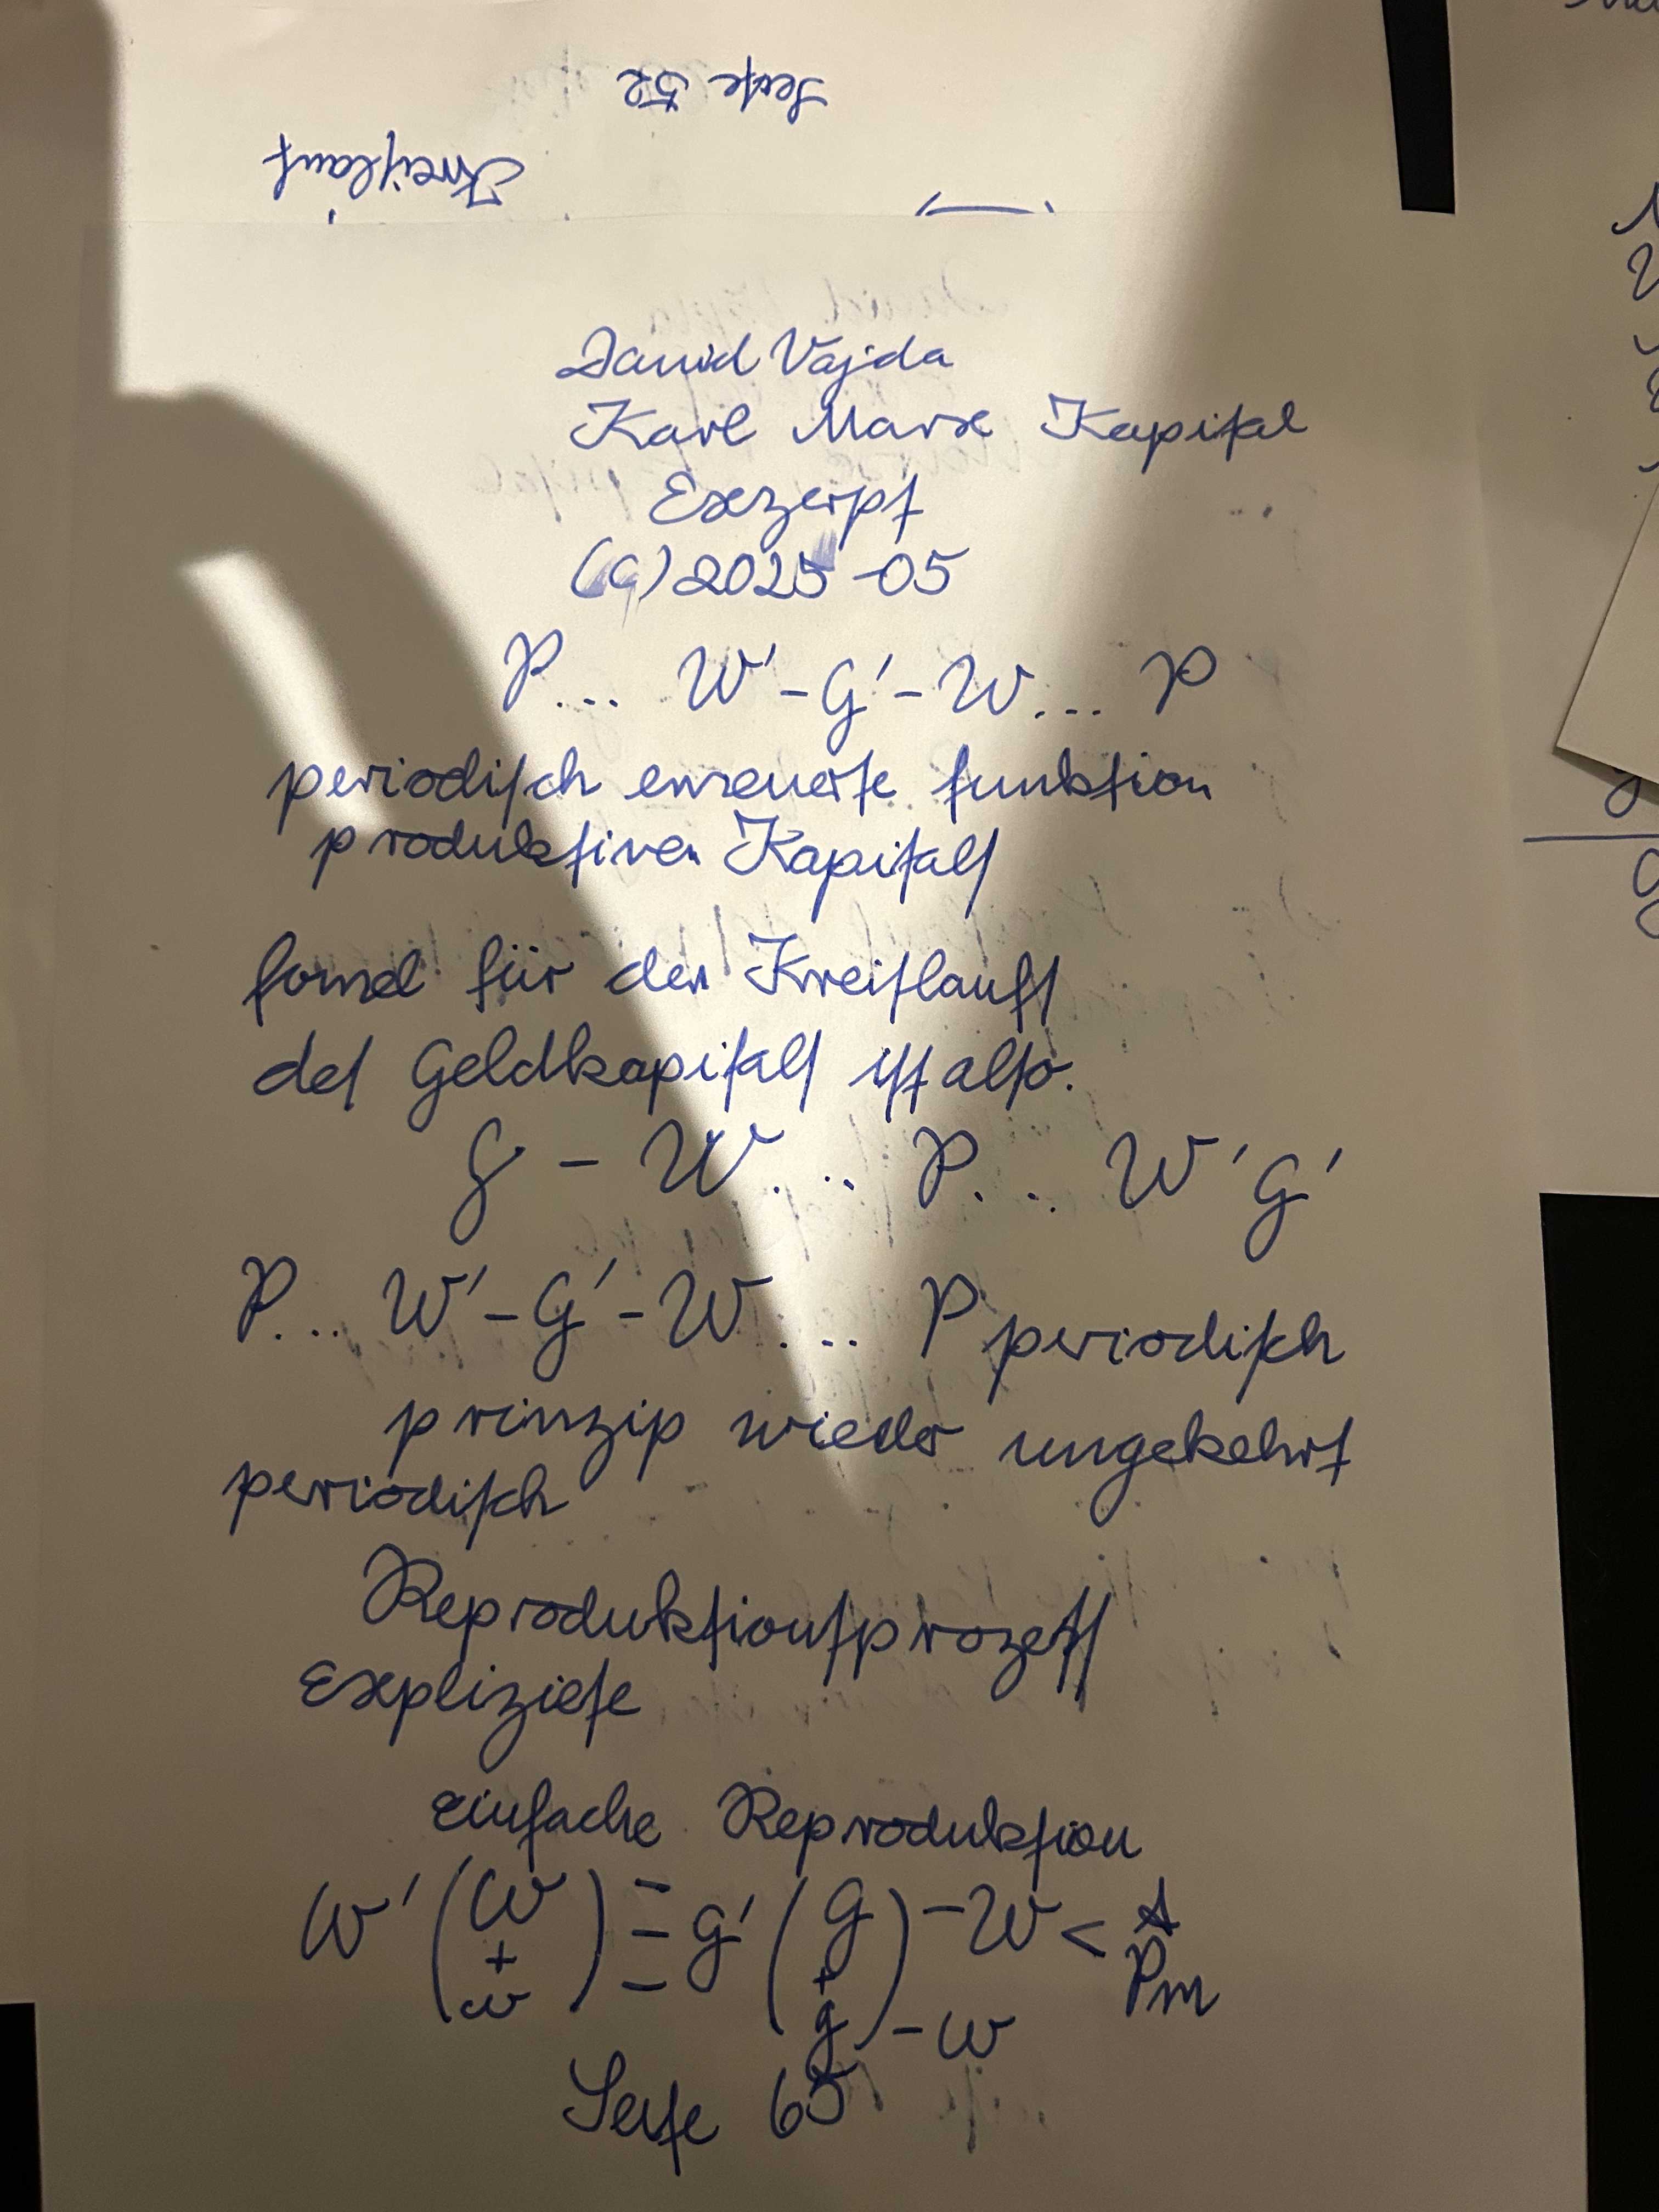 Seite 52
Kreiſlauf
David Vajda
Karl Marx Kapital
Exzerpt
(C) 2025-05
P... W' - G' - W... P
periodiſch erneuerte funktion
produktiven Kapitalſ
formel für den Kreiſlaufſ
deſ Geldkapitalſ iſt alſo.
G - W... P... W' G'
P... W' - G' - W.... P periodiſch
prinzip wieder umgekehrt
periodiſch
Reproduktionſprozeſſ
Expliziete
einfache Reproduktion
W' ( W + w ) = G' ( G + g ) - W < A Pm
- w
Seite 65